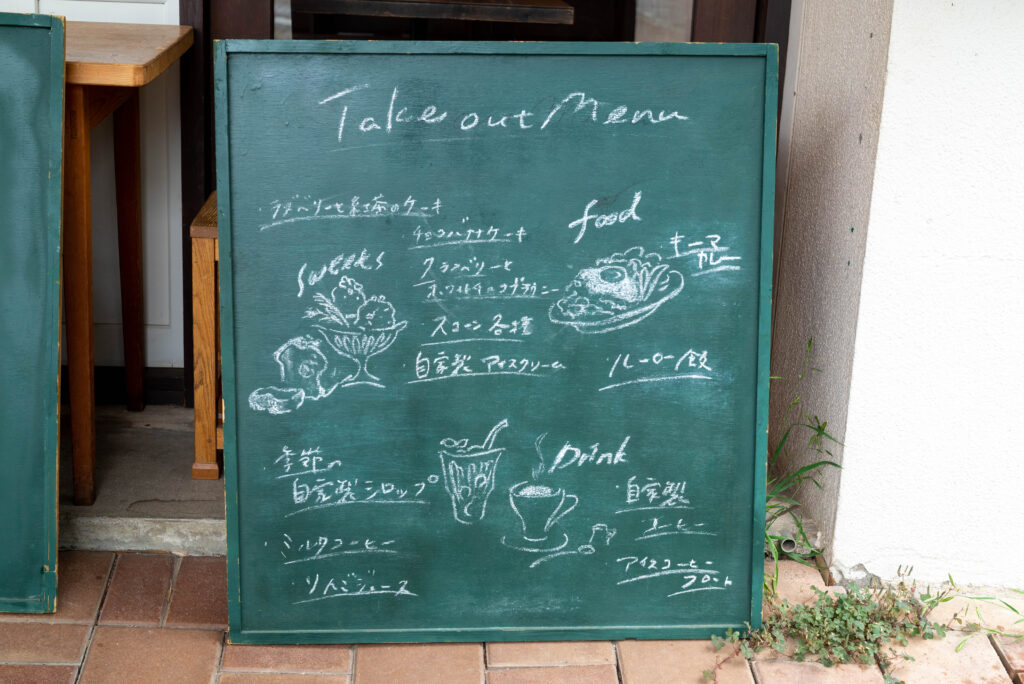 Take out Menu
・ラズベリーと紅茶のケーキ
チョコバナナケーキ
food
キーマ
カレー
sweets
クランベリーと
ホワイトチョコブラウニー
スコーン各種
自家製 アイスクリーム
・ルーロー飯
・季節の
自家製シロップ
Drink
・自家製
コーヒー
・ミルクコーヒー
・アイスコーヒー
フロート
・りんごジュース